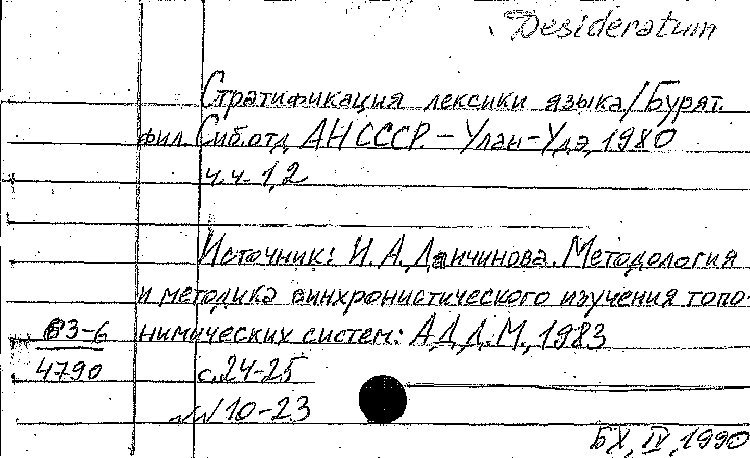 Desideratum
Стратификация лексики языка/Бурят.
фил. Сиб.отд. АН СССР. – Улан-Удэ, 1980
ч.ч. 1,2
Источник: И. А. Данчинова. Методология
и методика синхронистического изучения топо-
83-6 нимических систем: А.Д.Д. М., 1983
4790 с.24-25
10-23
БХ, IV, 1990